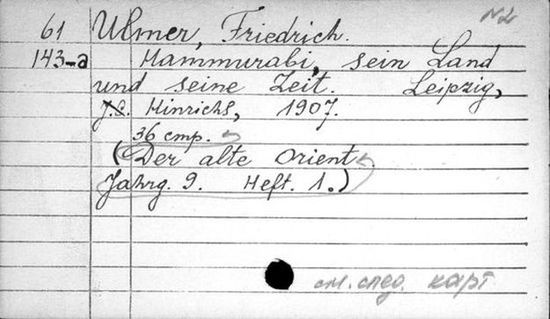 N2
61 Ulmer, Friedrich.
143-a Hammurabi, sein Land
und seine Zeit. Leipzig,
J.C. Hinrichs, 1907.
36 стр.
(Der alte Orient
Jahrg. 9. Heft. 1.)
см. след. карт